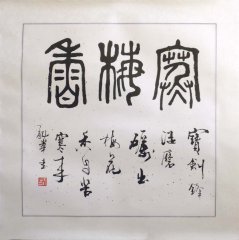 寶梅香
寶劍鋒
從磨
礪出
梅花
香自苦
寒來